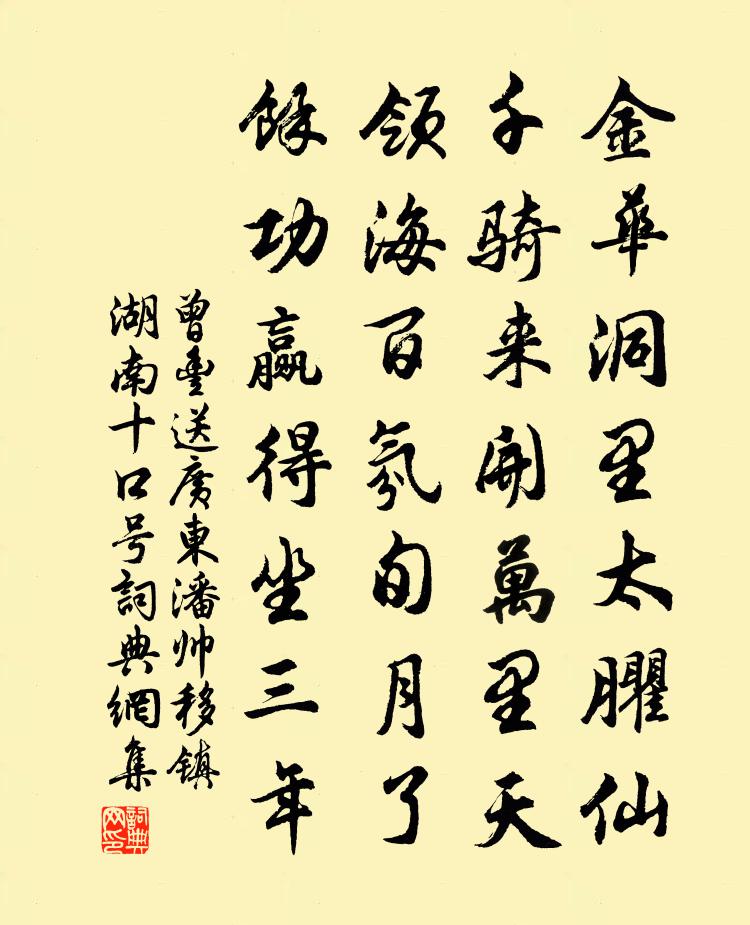 金華洞里太臞仙
千騎来開萬里天
領海百氛旬月了
餘功贏得坐三年
曾豐送廣東潘帅移镇
湖南十口号詞典網集
詞典網印